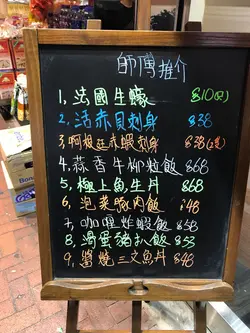 師傅推介
1, 法國生蠔 $10(隻)
2, 活赤貝刺身 $38
3, 阿根廷赤蝦刺身 $38(2隻)
4, 蒜香牛柳粒飯 $68
5, 極上魚生丼 $68
6, 泡菜豚肉飯 $48
7, 咖喱炸蝦飯 $58
8, 滑蛋豬扒飯 $53
9, 醬燒三文魚丼 $48